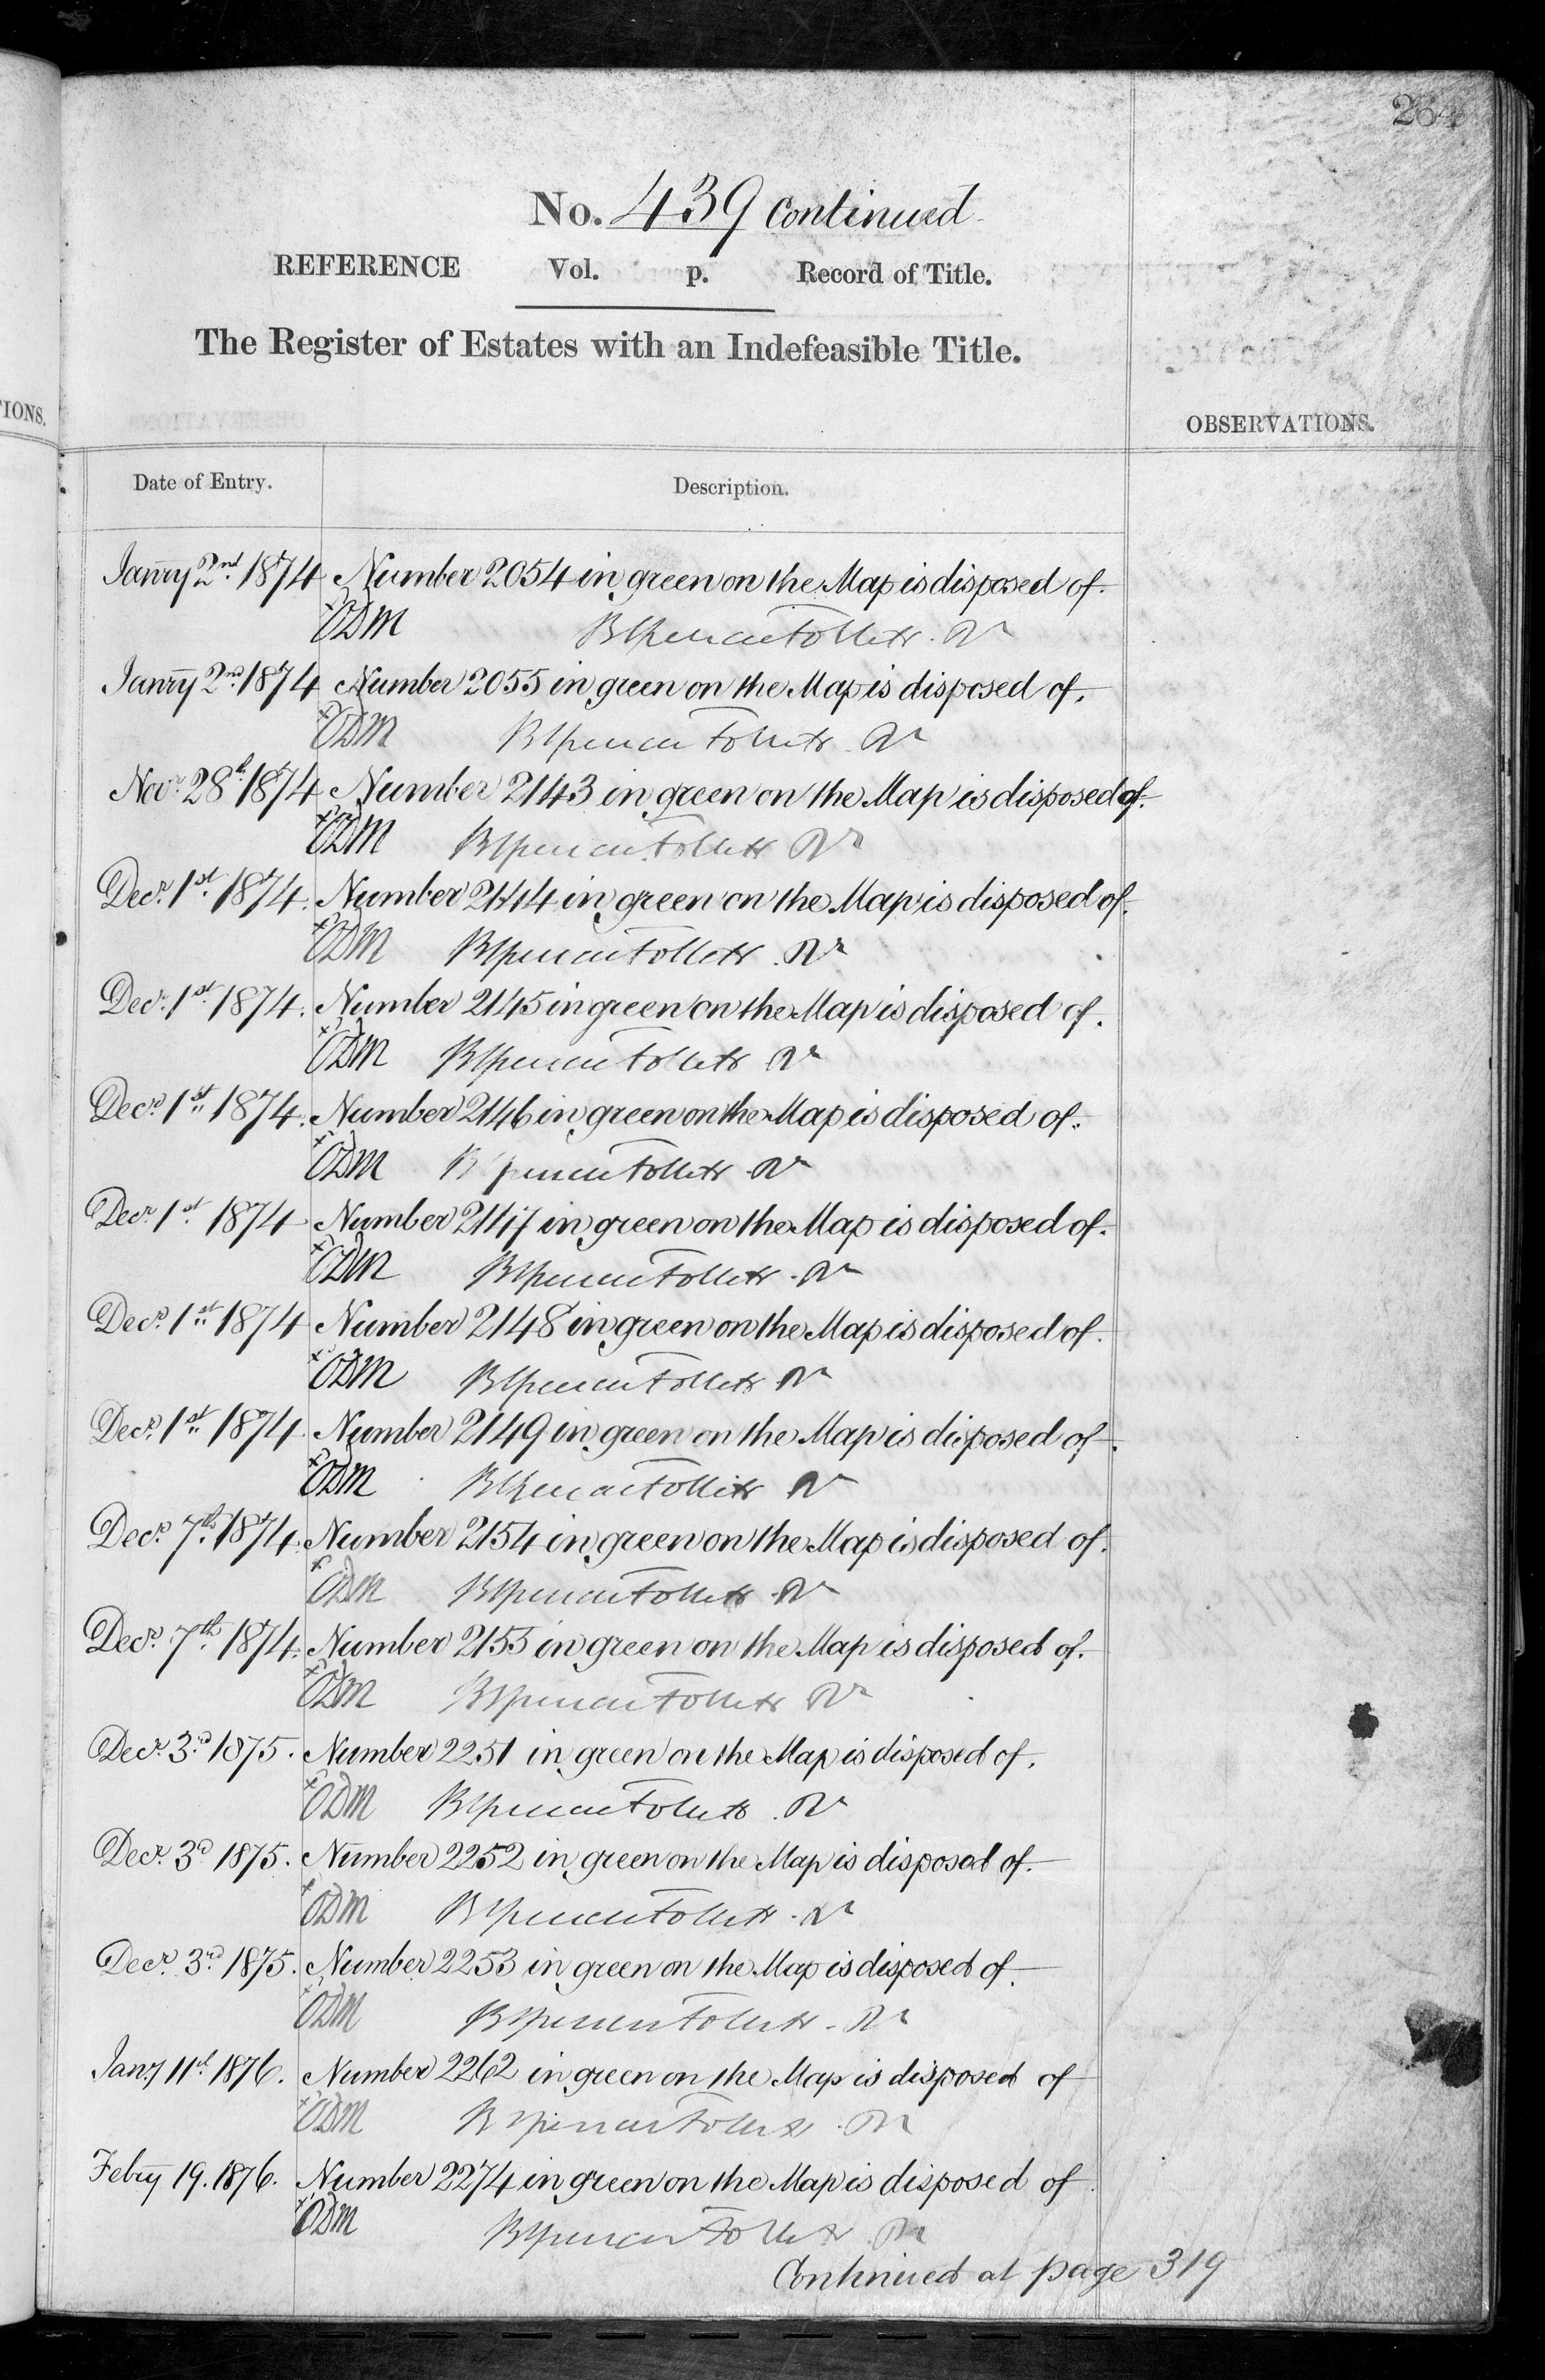 264
No. 439 continued
REFERENCE Vol. p. Record of Title.
The Register of Estates with an Indefeasible Title.
IONS.
OBSERVATIONS.
Date of Entry. Description.
Janry 2nd 1874 Number 2054 in green on the Map is disposed of.
ODM
Janry 2nd 1874 Number 2055 in green on the Map is disposed of.
ODM
Novr 28th 1874 Number 2143 in green on the Map is disposed of.
ODM
Decr 1st 1874. Number 2144 in green on the Map is disposed of.
ODM
Decr 1st 1874. Number 2145 in green on the Map is disposed of.
ODM
Decr 1st 1874. Number 2146 in green on the Map is disposed of.
ODM
Decr 1st 1874 Number 2147 in green on the Map is disposed of.
ODM
Decr 1st 1874 Number 2148 in green on the Map is disposed of.
ODM
Decr 1st 1874. Number 2149 in green on the Map is disposed of.
ODM
Decr 7th 1874. Number 2154 in green on the Map is disposed of.
ODM
Decr 7th 1874. Number 2155 in green on the Map is disposed of.
ODM
Decr 3rd 1875. Number 2251 in green on the Map is disposed of.
ODM
Decr 3d 1875. Number 2252 in green on the Map is disposed of.
ODM
Decr 3rd 1875. Number 2253 in green on the Map is disposed of.
ODM
Jany 11th 1876. Number 2262 in green on the Map is disposed of
ODM
Febry 19. 1876. Number 2274 in green on the Map is disposed of
ODM
Continued at page 319